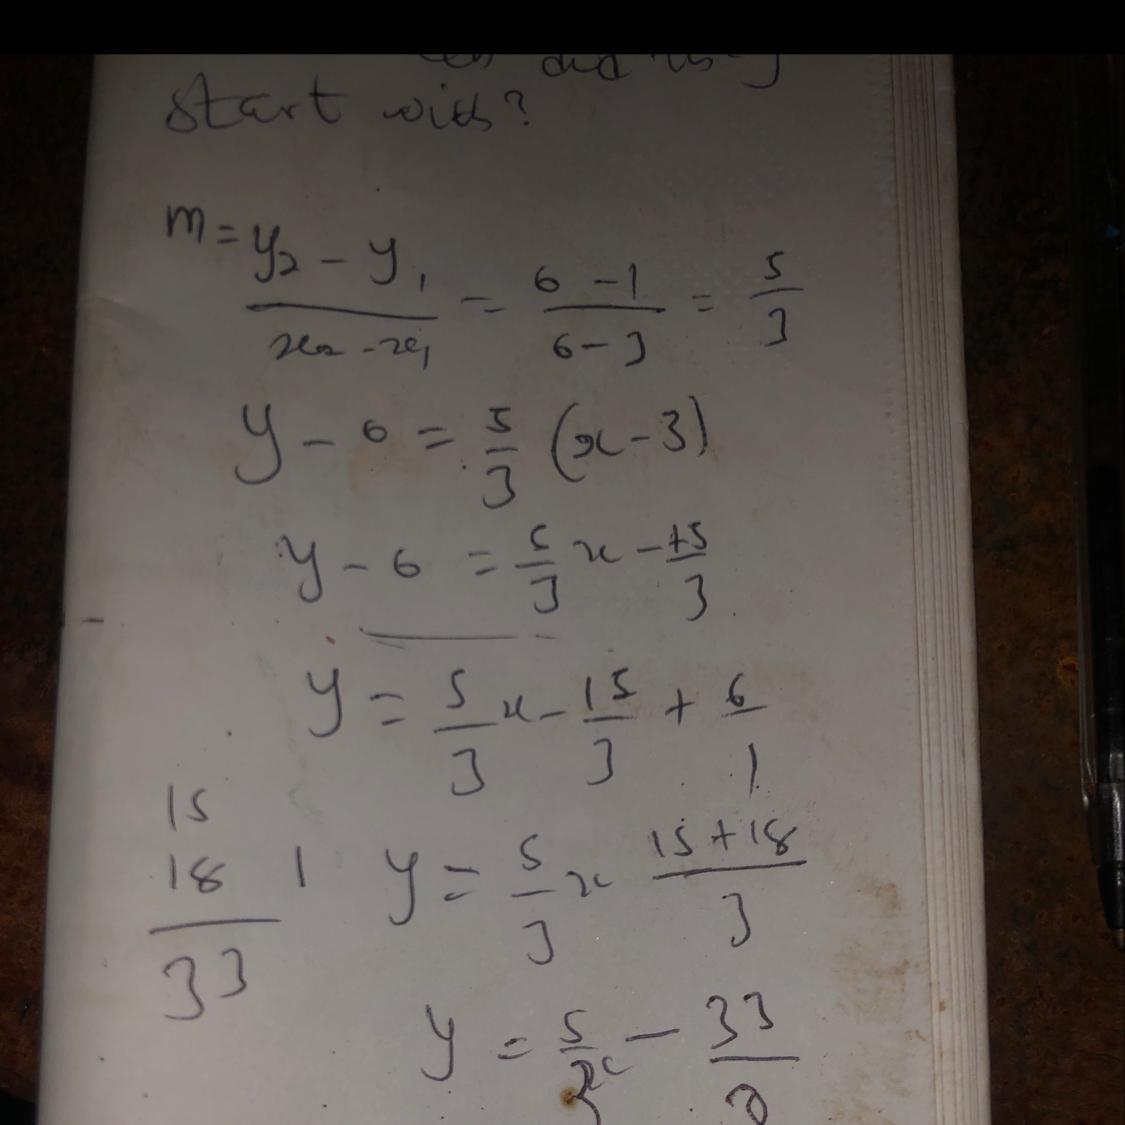 did
start with?
m = y₂ - y₁ / x₂ - x₁ = 6 - 1 / 6 - 3 = 5/3
y - 6 = 5/3 (x - 3)
y - 6 = 5/3 x - 15/3
y = 5/3 x - 15/3 + 6/1
15
18 1 y = 5/3 x 15 + 18 / 3
33
y = 5/3 x - 33